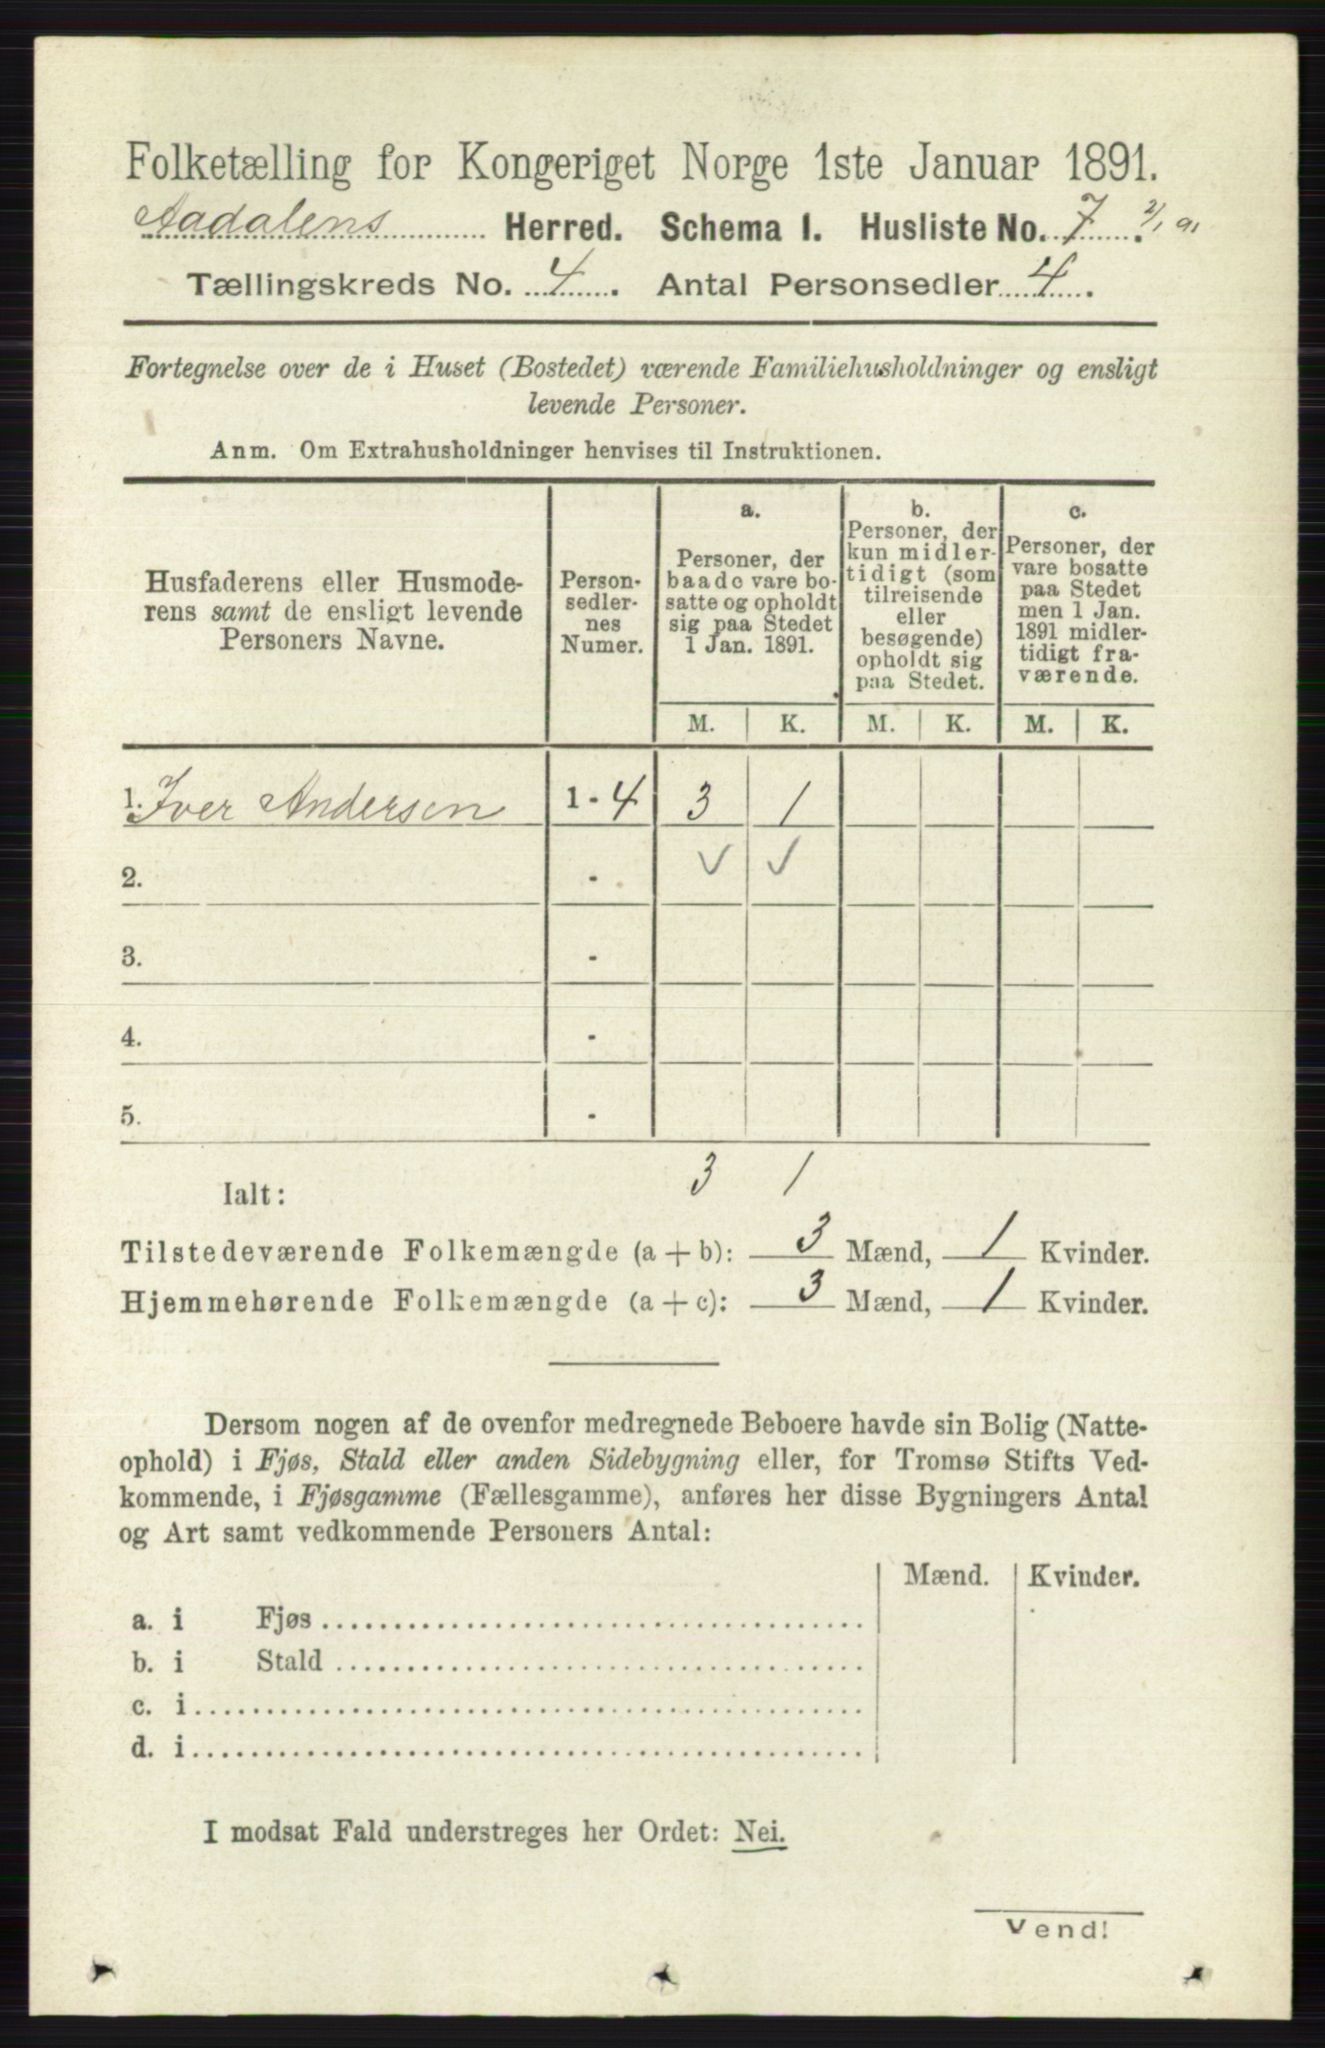 Folketælling for Kongeriget Norge 1ste Januar 1891.
Aadalens Herred. Schema I. Husliste No. 7. 2/1 91
Tællingskreds No. 4. Antal Personsedler 4.
Fortegnelse over de i Huset (Bostedet) værende Familiehusholdninger og ensligt
levende Personer.
Anm. Om Extrahusholdninger henvises til Instruktionen.
Husfaderens eller Husmode-
rens samt de ensligt levende
Personers Navne.
Person-
sedler-
nes
Numer.
a.
Personer, der
baade vare bo-
satte og opholdt
sig paa Stedet
1 Jan. 1891.
b.
Personer, der
kun midler-
tidigt (som
tilreisende
eller
besøgende)
opholdt sig
paa Stedet.
c.
Personer, der
vare bosatte
paa Stedet
men 1 Jan.
1891 midler-
tidigt fra-
værende.
M. K. M. K. M. K.
1. Iver Andersen 1 - 4 3 1
2. - ✓ ✓
3. -
4. -
5. -
Ialt: 3 1
Tilstedeværende Folkemængde (a + b): 3 Mænd, 1 Kvinder.
Hjemmehørende Folkemængde (a + c): 3 Mænd, 1 Kvinder.
Dersom nogen af de ovenfor medregnede Beboere havde sin Bolig (Natte-
ophold) i Fjøs, Stald eller anden Sidebygning eller, for Tromsø Stifts Ved-
kommende, i Fjøsgamme (Fællesgamme), anføres her disse Bygningers Antal
og Art samt vedkommende Personers Antal:
Mænd. Kvinder.
a. i Fjøs
b. i Stald
c. i
d. i
I modsat Fald understreges her Ordet: Nei.
Vend!